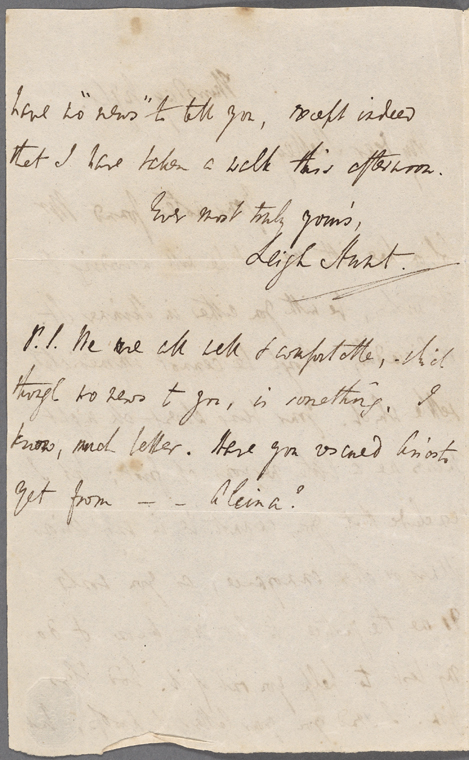 have no "news" to tell you, except indeed
that I have taken a walk this afternoon.
Ever most truly yours,
Leigh Hunt.
P.S. We are all well & comfortable, which
though no news to you, is something, I
know, much better. Have you rescued Ariosto
yet from — — Alcina?